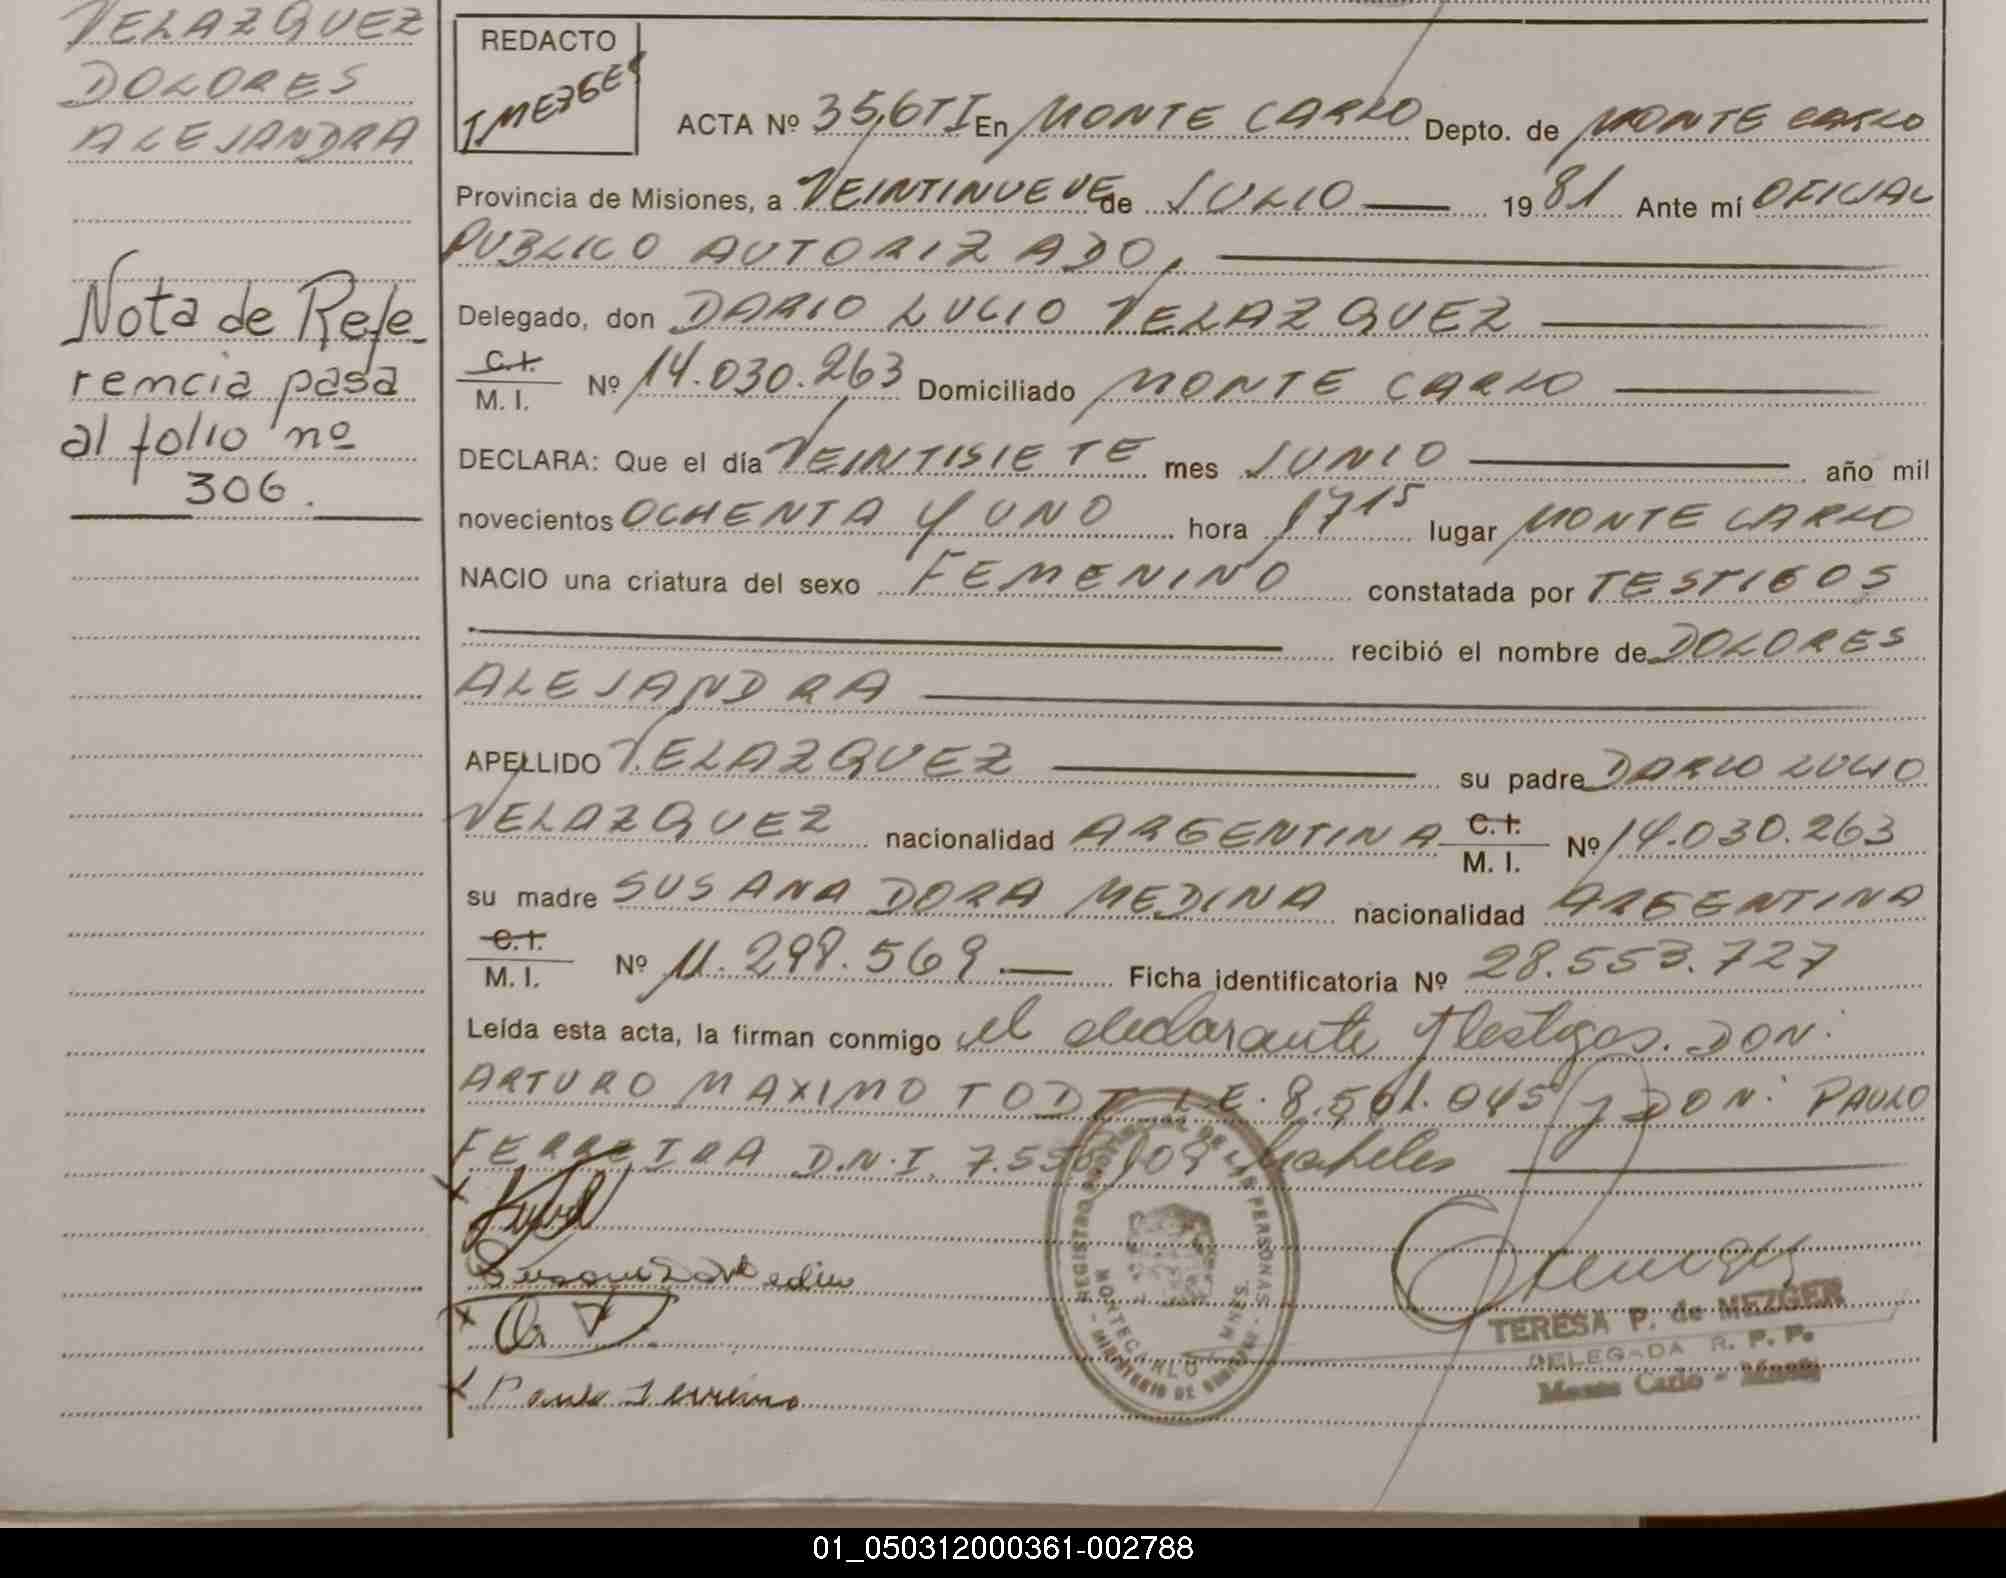 VELAZQUEZ
DOLORES
ALEJANDRA
Nota de Refe-
rencia pasa
al folio nº
306.
REDACTO
ACTA Nº 356TI En MONTE CARLO Depto. de MONTE CARLO
Provincia de Misiones, a VEINTINUEVE de JULIO 1981 Ante mí OFICIAL
PUBLICO AUTORIZADO,
Delegado, don DARIO LUCIO VELAZQUEZ
C.I.
M. I. Nº 14.030.263 Domiciliado MONTE CARLO
DECLARA: Que el día VEINTISIETE mes JUNIO año mil
novecientos OCHENTA Y UNO hora 17 15 lugar MONTE CARLO
NACIO una criatura del sexo FEMENINO constatada por TESTIGOS
recibió el nombre de DOLORES
ALEJANDRA
APELLIDO VELAZQUEZ su padre DARIO LUCIO
VELAZQUEZ nacionalidad ARGENTINA C.I. M. I. Nº 14.030.263
su madre SUSANA DORA MEDINA nacionalidad ARGENTINA
C.I.
M. I. Nº 11.298.569 Ficha identificatoria Nº 28.553.727
Leída esta acta, la firman conmigo el declarante y testigos. DON:
ARTURO MAXIMO TODT L.E. 8.501.045 y DON: PAULO
FERREIRA D.N.I. habiles
REGISTRO PERSONAS
MONTECARLO MNES.
TERESA P. de MEZGER
DELEGADA R. P. P.
Monte Carlo - Mnes
01_050312000361-002788